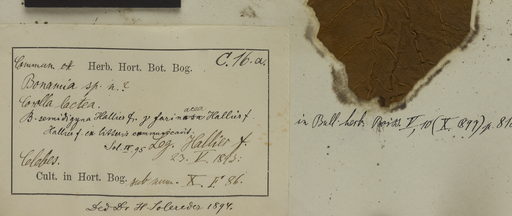 Commun. ex Herb. Hort. Bot. Bog. C. 16. a.
Bonamia sp. n.?
Corolla lactea.
B. semidigyna Hallier f. γ farinacea Hallier f.
Hallier f. ex litteris communicavit.
Leg. Hallier f.
Celebes. 23. V. 1893.
Cult. in Hort. Bog. sub num. X. F. 86.
Ded. Dr. H. Solereder 1894.
in Bull. herb. Boiss. V, 10 (X. 1897) p. 81